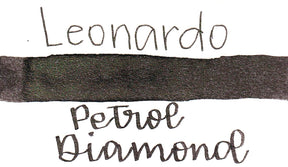 Leonardo
Petrol
Diamond